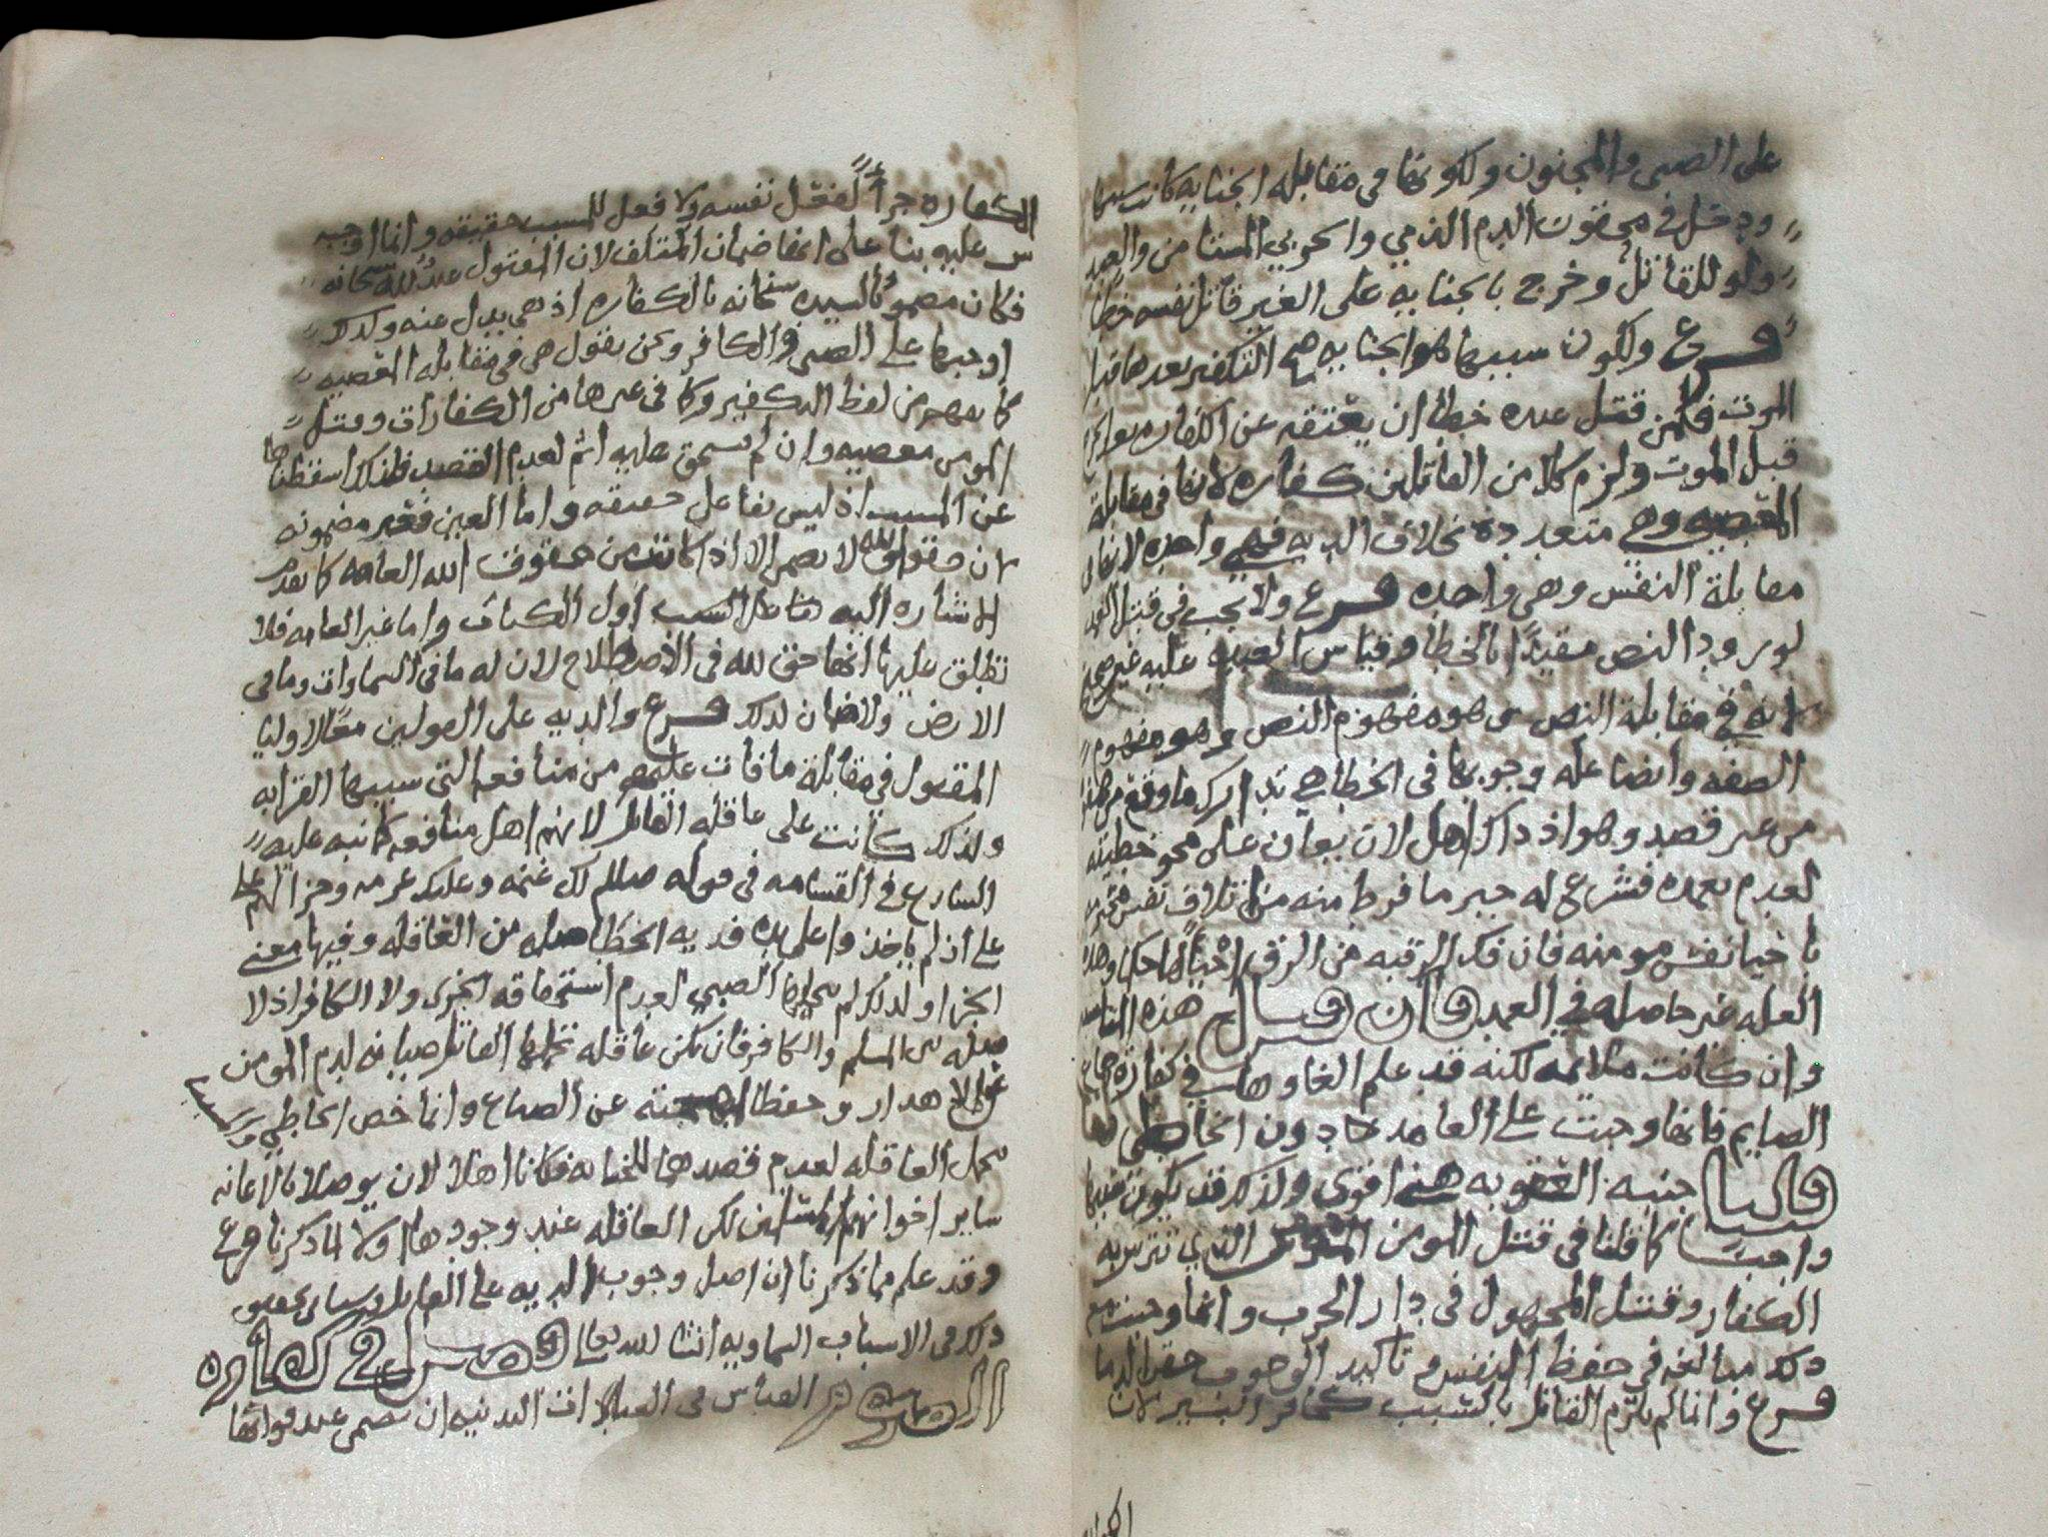 على الصبي والمجنون ولكونها في مقابله الجنايه كانت
ودخل في محقون الدم الذمي والحربي المستامن والعبد
ولو للقاتل وخرج بالجنايه على الغير قاتل نفسه خطأ
فرع ولكون سببها هو الجنايه صح التكفير بعدها قبل
الموت فلمن قتل عبده خطا ان يعتقه عن الكفاره بعد الجرح
قبل الموت ولزم كلا من القاتلين كفاره لانها في مقابلة
المعصيه وهي متعددة بخلاف الديه فهي واحده لانها في
مقابلة النفس وهي واحده فرع ولا يجب في قتل العمد
لورود النص مقيدًا بالخطا وقياس العمد عليه غير صحيح
لانه في مقابلة النص وهو مفهوم النص وهو مفهوم
الصفه وايضا عله وجوبها في الخطا هي تدارك ما وقع من
من غير قصد وهو اذ ذاك اهل لان يعان على محو خطيئته
لعدم تعمده فشرع له جبر ما فرط منه من اتلاف نفس
باحيا نفس مومنه فان فك الرقبه من الرق احيا لها حكما وهذه
العله غير حاصله في العمد فان قيل هذه
وان كانت ملايمه لكنه قد علم الغاوها في كفارة
الصايم فانها وجبت على العامد دون الخاطي
قلنا جنبه العقوبه هنا اقوى ولذلك قد يكون سببها
واجبًا كما قلنا في قتل المومن الذي تترس به
الكفار وقتل المجهول في دار الحرب وانما وجبت مع
ذلك مبالغه في حفظ النفس وتاكيد الوجوب حقن الدما
فرع وانما لم يلزم القاتل بالتسبب كحافر البير لان
الكفاره جزأً لمقتل نفسه ولا فعل للمسبب حقيقه وانما اوجبه
س عليه بنا على انها ضمان المتلف لان المقتول عبد لله سبحانه
فكان مضمونًا لسيده سبحانه بالكفاره اذ هي بدل عنه ولذلك
اوجبها على الصبي والكافر ونحن نقول هي في مقابله المعصيه
كما يفهم من لفظ التكفير وكما في غيرها من الكفارات وقتل
المومن معصيه وان لم يستحق عليه اثم لعدم القصد فلذلك اسقطناها
عن المسبب اذ ليس بفاعل حقيقه واما العين فغير مضمونه
لان حقوق الله لا تضمن الا اذا كانت من حقوق الله العامه كما تقدمت
الاشاره اليه اول الكتاب واما غير العامه فلا
تطلق عليها انها حق لله في الاصطلاح لان له ما في السماوات وما في
الارض ولا ضمان لذلك فرع والديه على العولين معًا لاوليا
المقتول في مقابلة ما فات عليهم من منافعه التي سببها القرابه
ولذلك كانت على عاقله القاتل لانهم اهل منافعه كما نبه عليه
الشارع في القسامه في قوله صللم لك غنمه وعليك غرمه وجزا لهم على
على اذ لم ياخذوا على يده فديه الخطا من العاقله وفيها معنى
الجزا ولذلك لم يتحملها الصبي لعدم استحقاقه الجزى ولا الكافر اذ لا
بين المسلم والكافر فان لم تكن عاقله تحملها القاتل صيانه لدم المومن
عن الاهدار وحفظا عن الضياع وانما خص الخاطي
بتحمل العاقله لعدم قصدهما للجنايه فكانا اهلا لان يوصلا بالاعانه
ساير اخوانهم المسلمين لكن العاقله عند وجودها اولا لما ذكرنا فرع
وقد علم مما ذكرنا ان اصل وجوب الديه على القاتل وسياتي تحقيق
ذلك في الاسباب السماويه انشا الله تعالى فصل في كفارة
القياس في العبادات البدنيه ان تضمن عند فواتها